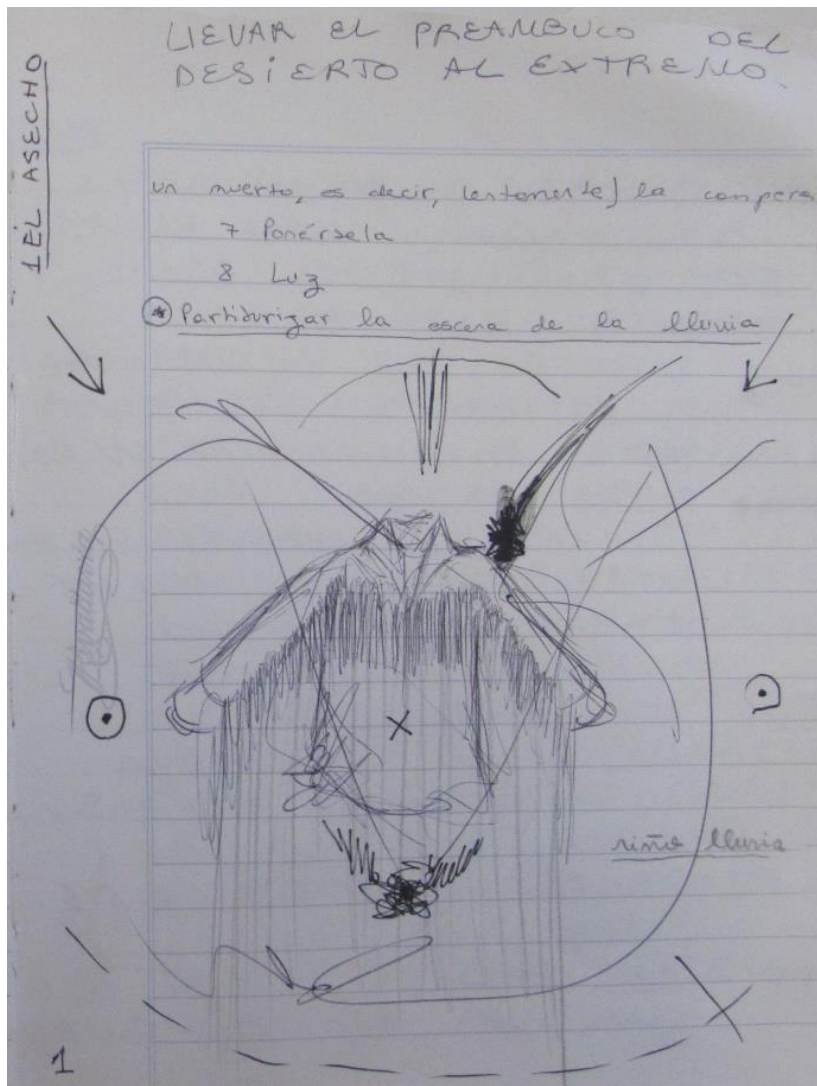 LLEVAR EL PREAMBULO DEL
DESiERTO AL EXTREMO.
1 EL ASECHO
un muerto, es decir, lentamente] la campera
7 Ponérsela
8 Luz
* Partiturizar la escena de la lluvia
niño lluvia
1